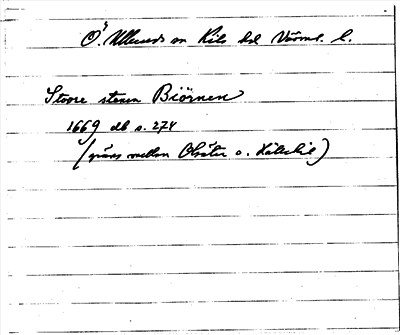 Ö. Ullerud sn Kils hd Värml. l.
Stoore stenen Biörnen
1669 db s. 274
(gräns mellan Olsäter o.